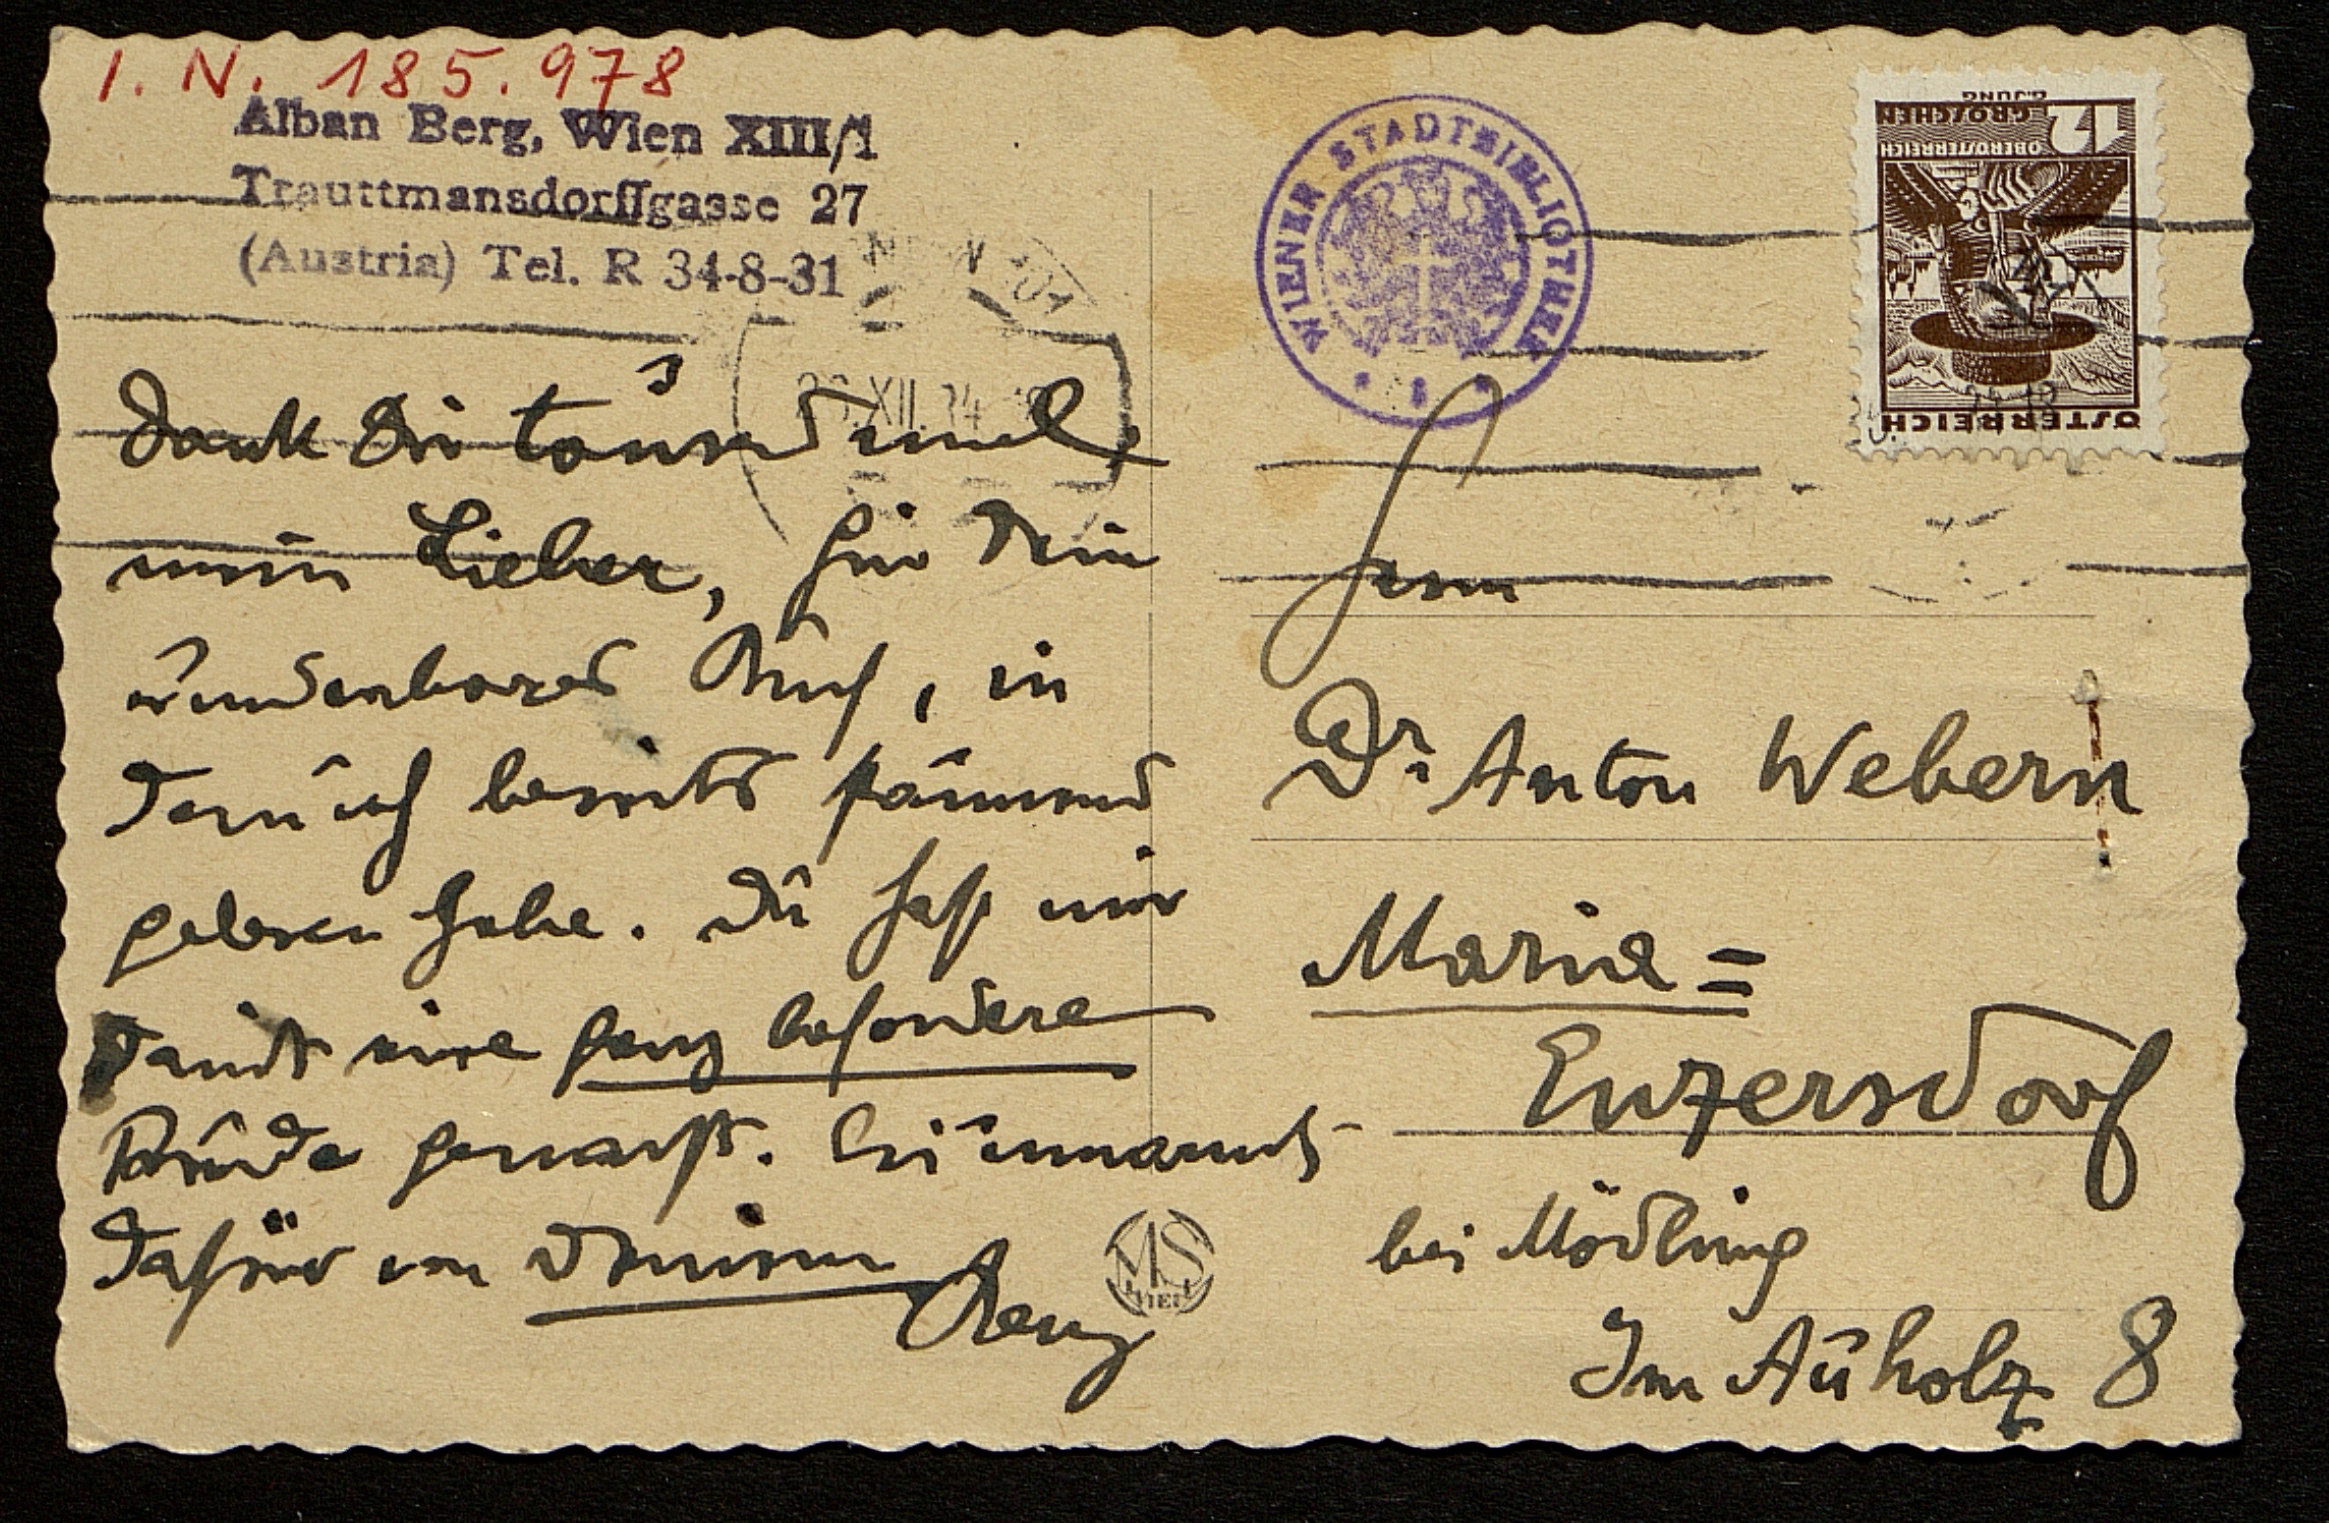 I. N. 185.978
Alban Berg, Wien XIII/1
Trauttmansdorffgasse 27
(Austria) Tel. R 34-8-31
Dank Dir tausendmal,
mein Lieber, für Dein
wunderbares Buch, in
dem ich bereits
gelesen habe. Du hast mir
damit eine ganz besondere
Freude gemacht. Sei umarmt
dafür von Deinem
Berg
MS
WIENER STADTBIBLIOTHEK
G. JUNG
12 GROSCHEN
OBERÖSTERREICH
ÖSTERREICH
XII 34
Herrn
Dr Anton Webern
Maria=
Enzersdorf
bei Mödling
Im Auholz 8